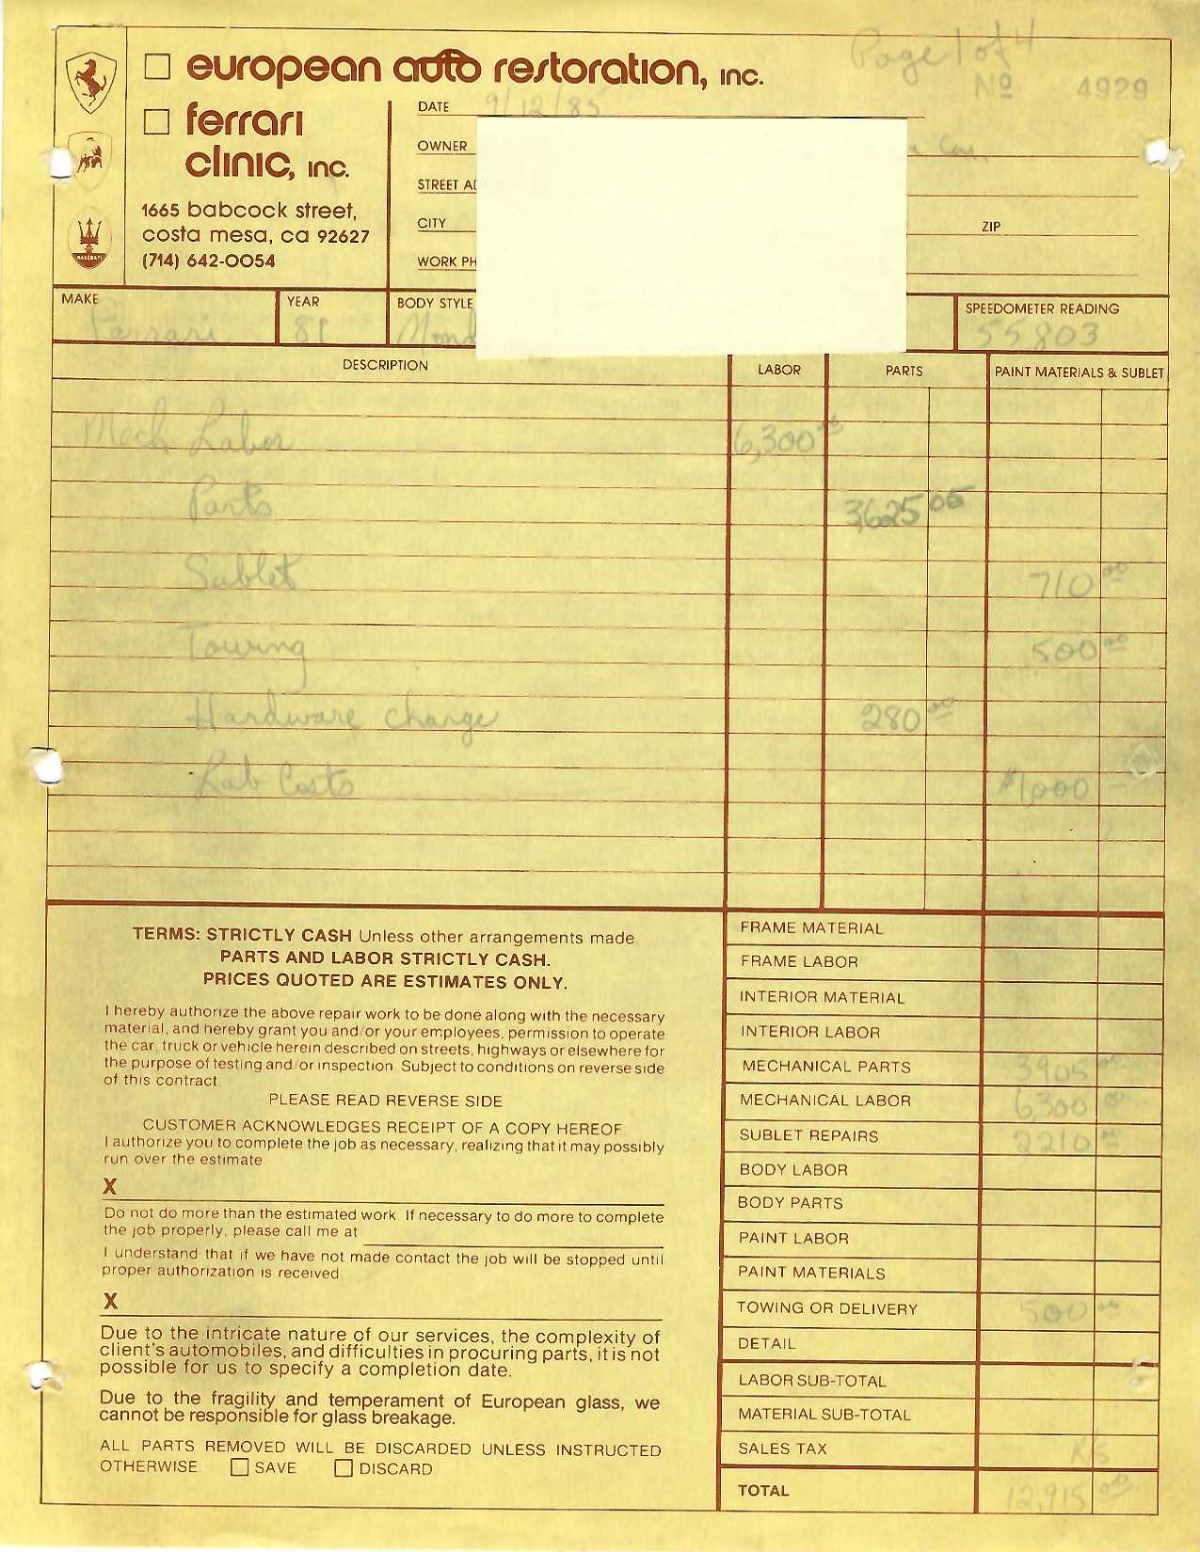 Page 1 of 4
european auto restoration, inc.
Nº 4929
ferrari
clinic, inc.
1665 babcock street,
costa mesa, ca 92627
(714) 642-0054
MASERATI
DATE 9/12/85
OWNER
STREET AD
CITY
ZIP
WORK PH
MAKE YEAR BODY STYLE SPEEDOMETER READING
Ferrari 81 Mond 55803
DESCRIPTION LABOR PARTS PAINT MATERIALS & SUBLET
Mech Labor 6,300 00
Parts 3625 05
Sublet 710 00
Towing 500 00
Hardware charge 280 00
Lab Costs $1,000
TERMS: STRICTLY CASH Unless other arrangements made.
PARTS AND LABOR STRICTLY CASH.
PRICES QUOTED ARE ESTIMATES ONLY.
I hereby authorize the above repair work to be done along with the necessary
material, and hereby grant you and/or your employees, permission to operate
the car, truck or vehicle herein described on streets, highways or elsewhere for
the purpose of testing and/or inspection. Subject to conditions on reverse side
of this contract.
PLEASE READ REVERSE SIDE
CUSTOMER ACKNOWLEDGES RECEIPT OF A COPY HEREOF.
I authorize you to complete the job as necessary, realizing that it may possibly
run over the estimate.
X
Do not do more than the estimated work. If necessary to do more to complete
the job properly, please call me at
I understand that if we have not made contact the job will be stopped until
proper authorization is received.
X
Due to the intricate nature of our services, the complexity of
client's automobiles, and difficulties in procuring parts, it is not
possible for us to specify a completion date.
Due to the fragility and temperament of European glass, we
cannot be responsible for glass breakage.
ALL PARTS REMOVED WILL BE DISCARDED UNLESS INSTRUCTED
OTHERWISE SAVE DISCARD
FRAME MATERIAL
FRAME LABOR
INTERIOR MATERIAL
INTERIOR LABOR
MECHANICAL PARTS 3905 00
MECHANICAL LABOR 6,300 00
SUBLET REPAIRS 2210 00
BODY LABOR
BODY PARTS
PAINT LABOR
PAINT MATERIALS
TOWING OR DELIVERY 500 00
DETAIL
LABOR SUB-TOTAL
MATERIAL SUB-TOTAL
SALES TAX RS
TOTAL 12,915 00